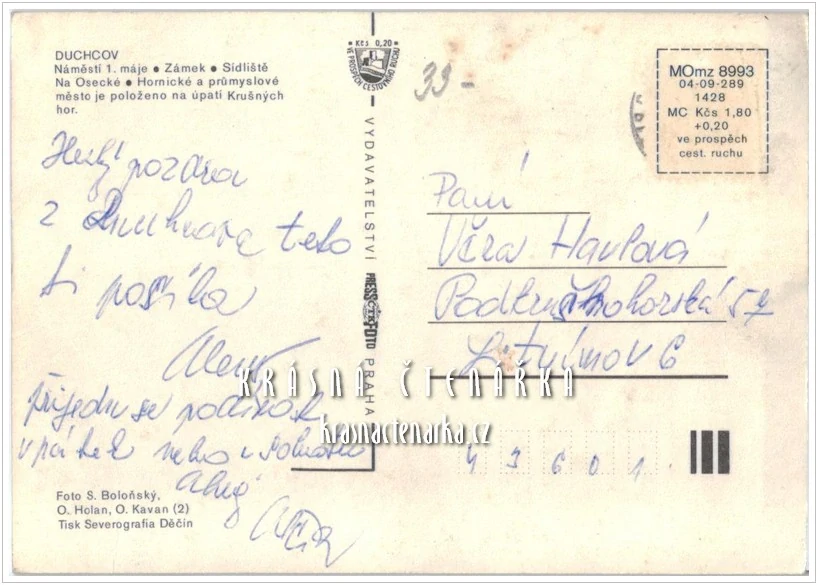 DUCHCOV
Náměstí 1. máje • Zámek • Sídliště
Na Osecké • Hornické a průmyslové
město je položeno na úpatí Krušných
hor.
Kčs 0,20
VE PROSPĚCH CESTOVNÍHO RUCHU
39-
MOmz 8993
04-09-289
1428
MC Kčs 1,80
+0,20
ve prospěch
cest. ruchu
Hezký pozdrav
z Duchcova teto
ti posílá
přijedu se podívat
v pátek nebo v sobotu
Ahoj
VYDAVATELSTVÍ PRESSFOTO PRAHA
Paní
Věra Havlová
Podkrušnohorská 57
Litvínov 6
43601
KRÁSNÁ ČTENÁŘKA
krasnactenarka.cz
Foto S. Boloňský,
O. Holan, O. Kavan (2)
Tisk Severografia Děčín